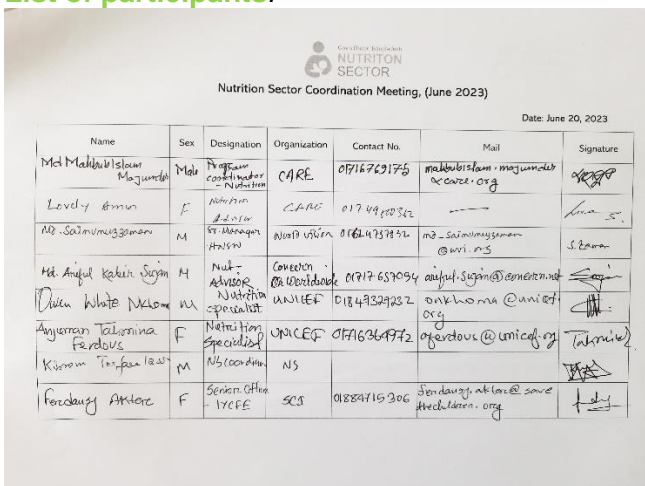 List of participants:
NUTRITON
SECTOR
Nutrition Sector Coordination Meeting, (June 2023)
Date: June 20, 2023
Name Sex Designation Organization Contact No. Mail Signature
Md Mahbub Islam Majumder Male Program coordinator - Nutrition CARE 01716769175 mahbubislam.majumder @care.org
Lovely Amin F Nutrition Advisor CARE
Md. Saimumuzzaman M Sr. Manager HNSW World Vision md_saimumuzzaman @wvi.org S. Zaman
Md. Ariful Kabir Sujan M Nut- Advisor Concern Worldwide 01717657094 ariful.sujan@concern.net
Owen White Nkhoma M Nutrition specialist UNICEF 01847329232 onkhoma@unicef.org
Anjuman Tahmina Ferdous F Nutrition Specialist UNICEF 01716364972 aferdous@unicef.org Tahmina
M NS coordina NS
Ferdausy Aktere F Senior Officer - IYCFE SCI 01884715306 ferdausy.aktere@savethechildren.org